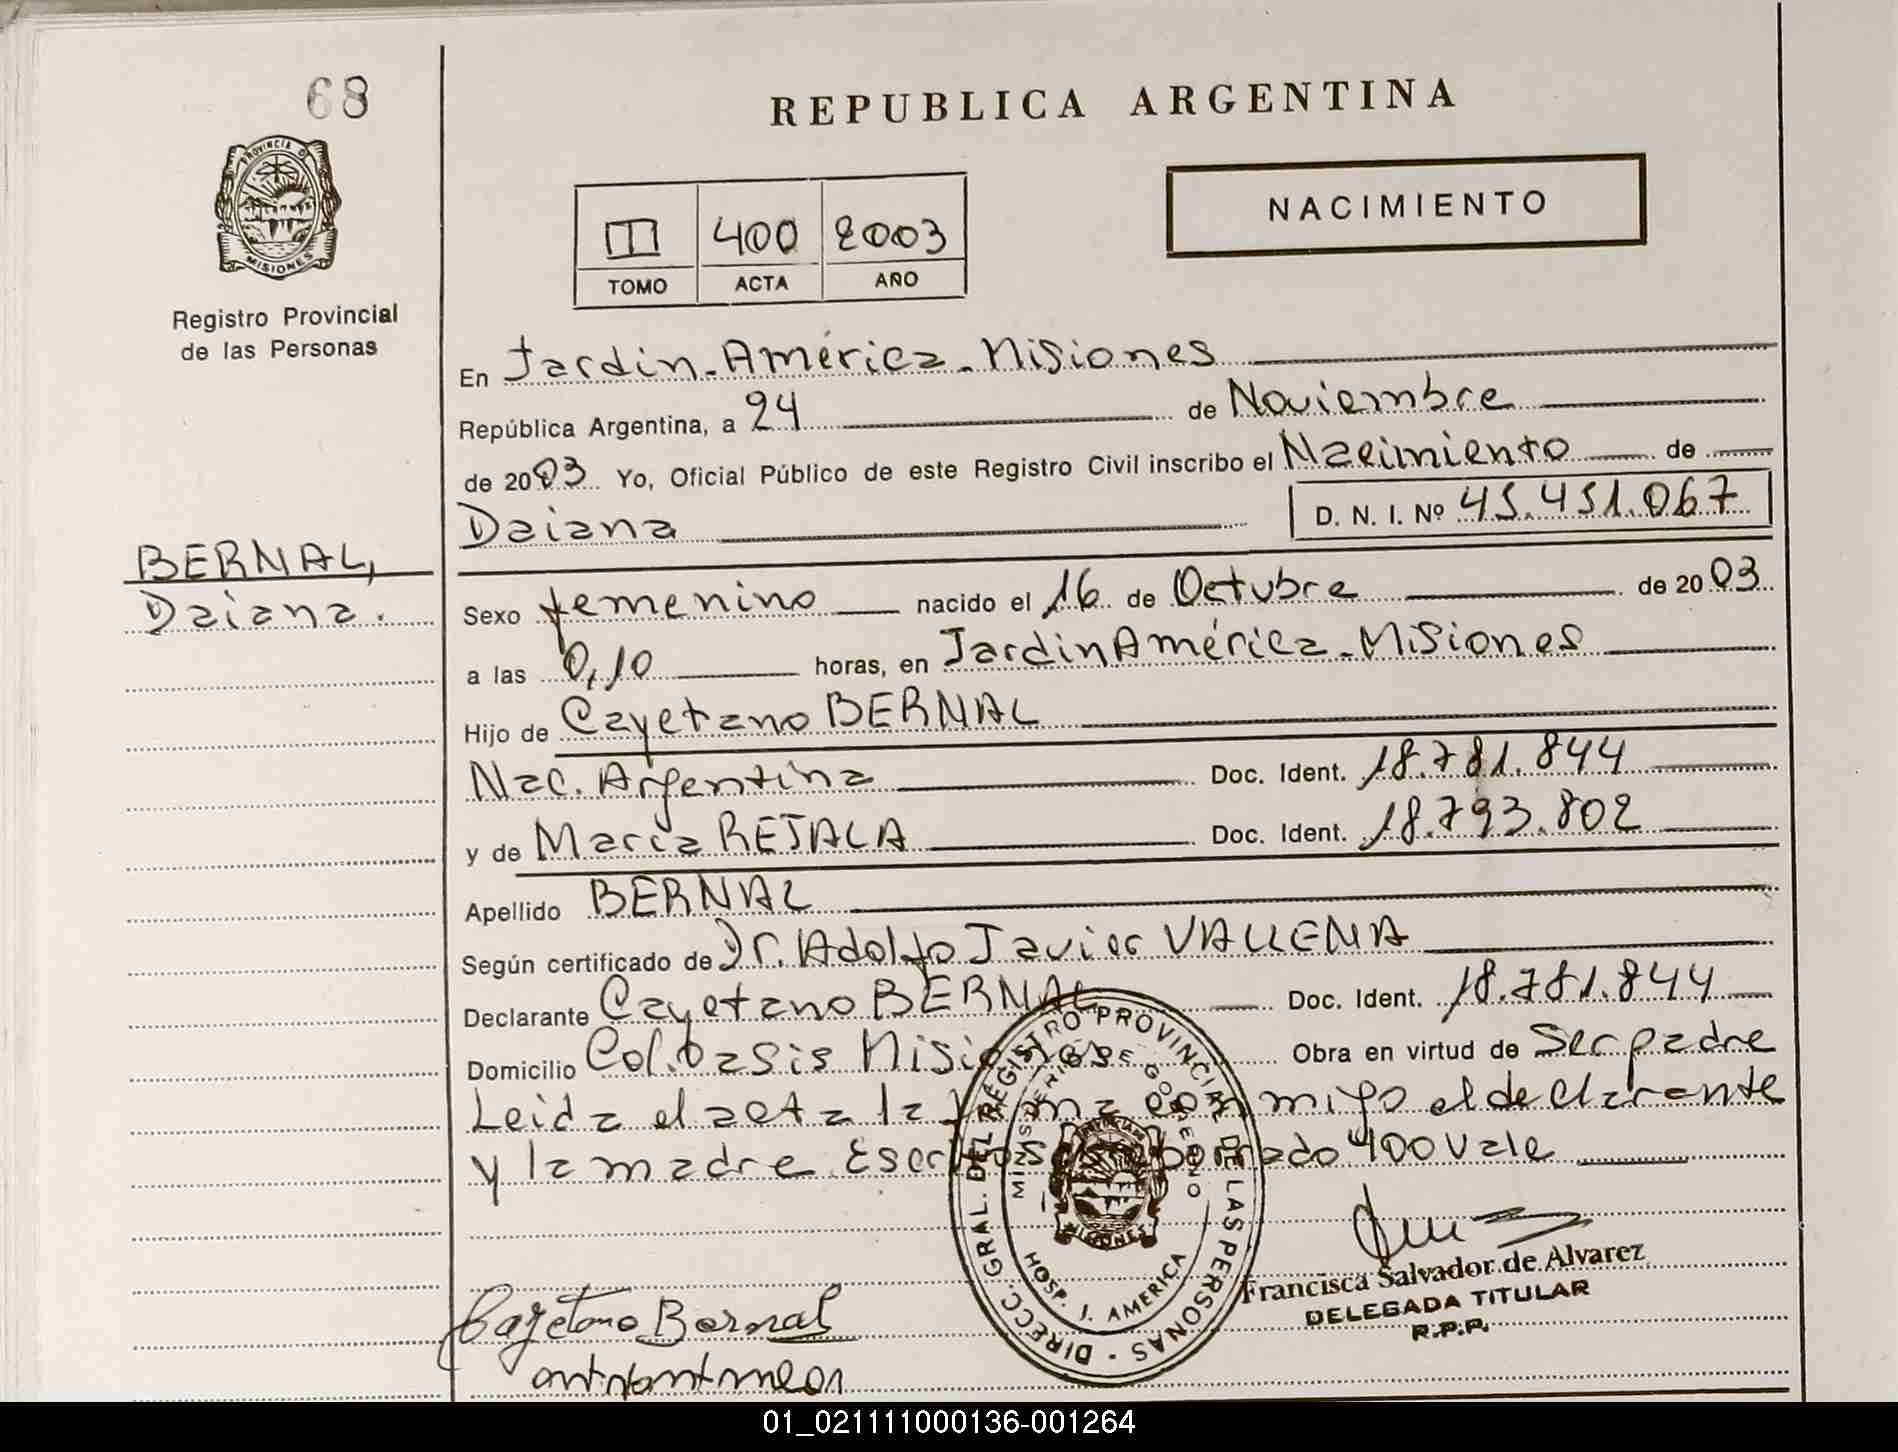 68
REPUBLICA ARGENTINA
PROVINCIA D
MISIONES
Registro Provincial
de las Personas
NACIMIENTO
II 400 2003
TOMO ACTA AÑO
En Jardin América Misiones
República Argentina, a 24 de Noviembre
de 2003 Yo, Oficial Público de este Registro Civil inscribo el Nacimiento de
Daiana D. N. I. Nº 45.451.067
BERNAL,
Daiana.
Sexo femenino nacido el 16 de Octubre de 2003
a las 0,10 horas, en Jardin América Misiones
Hijo de Cayetano BERNAL
Nac. Argentina Doc. Ident. 18.781.844
y de María REJALA Doc. Ident. 18.793.802
Apellido BERNAL
Según certificado de Dr. Adolfo Javier VALLENA
Declarante Cayetano BERNAL Doc. Ident. 18.781.844
Domicilio Col. Oasis Misiones Obra en virtud de Ser padre
Leida el acta la firma conmigo el declarante
y la madre. Escrito borrado 400 Vale
DIRECC. GRAL. DEL REGISTRO PROVINCIAL DE LAS PERSONAS
MINISTERIO DE GOBIERNO
MISIONES
HOSP. J. AMERICA
Francisca Salvador de Alvarez
DELEGADA TITULAR
R.P.P.
Cayetano Bernal
01_021111000136-001264